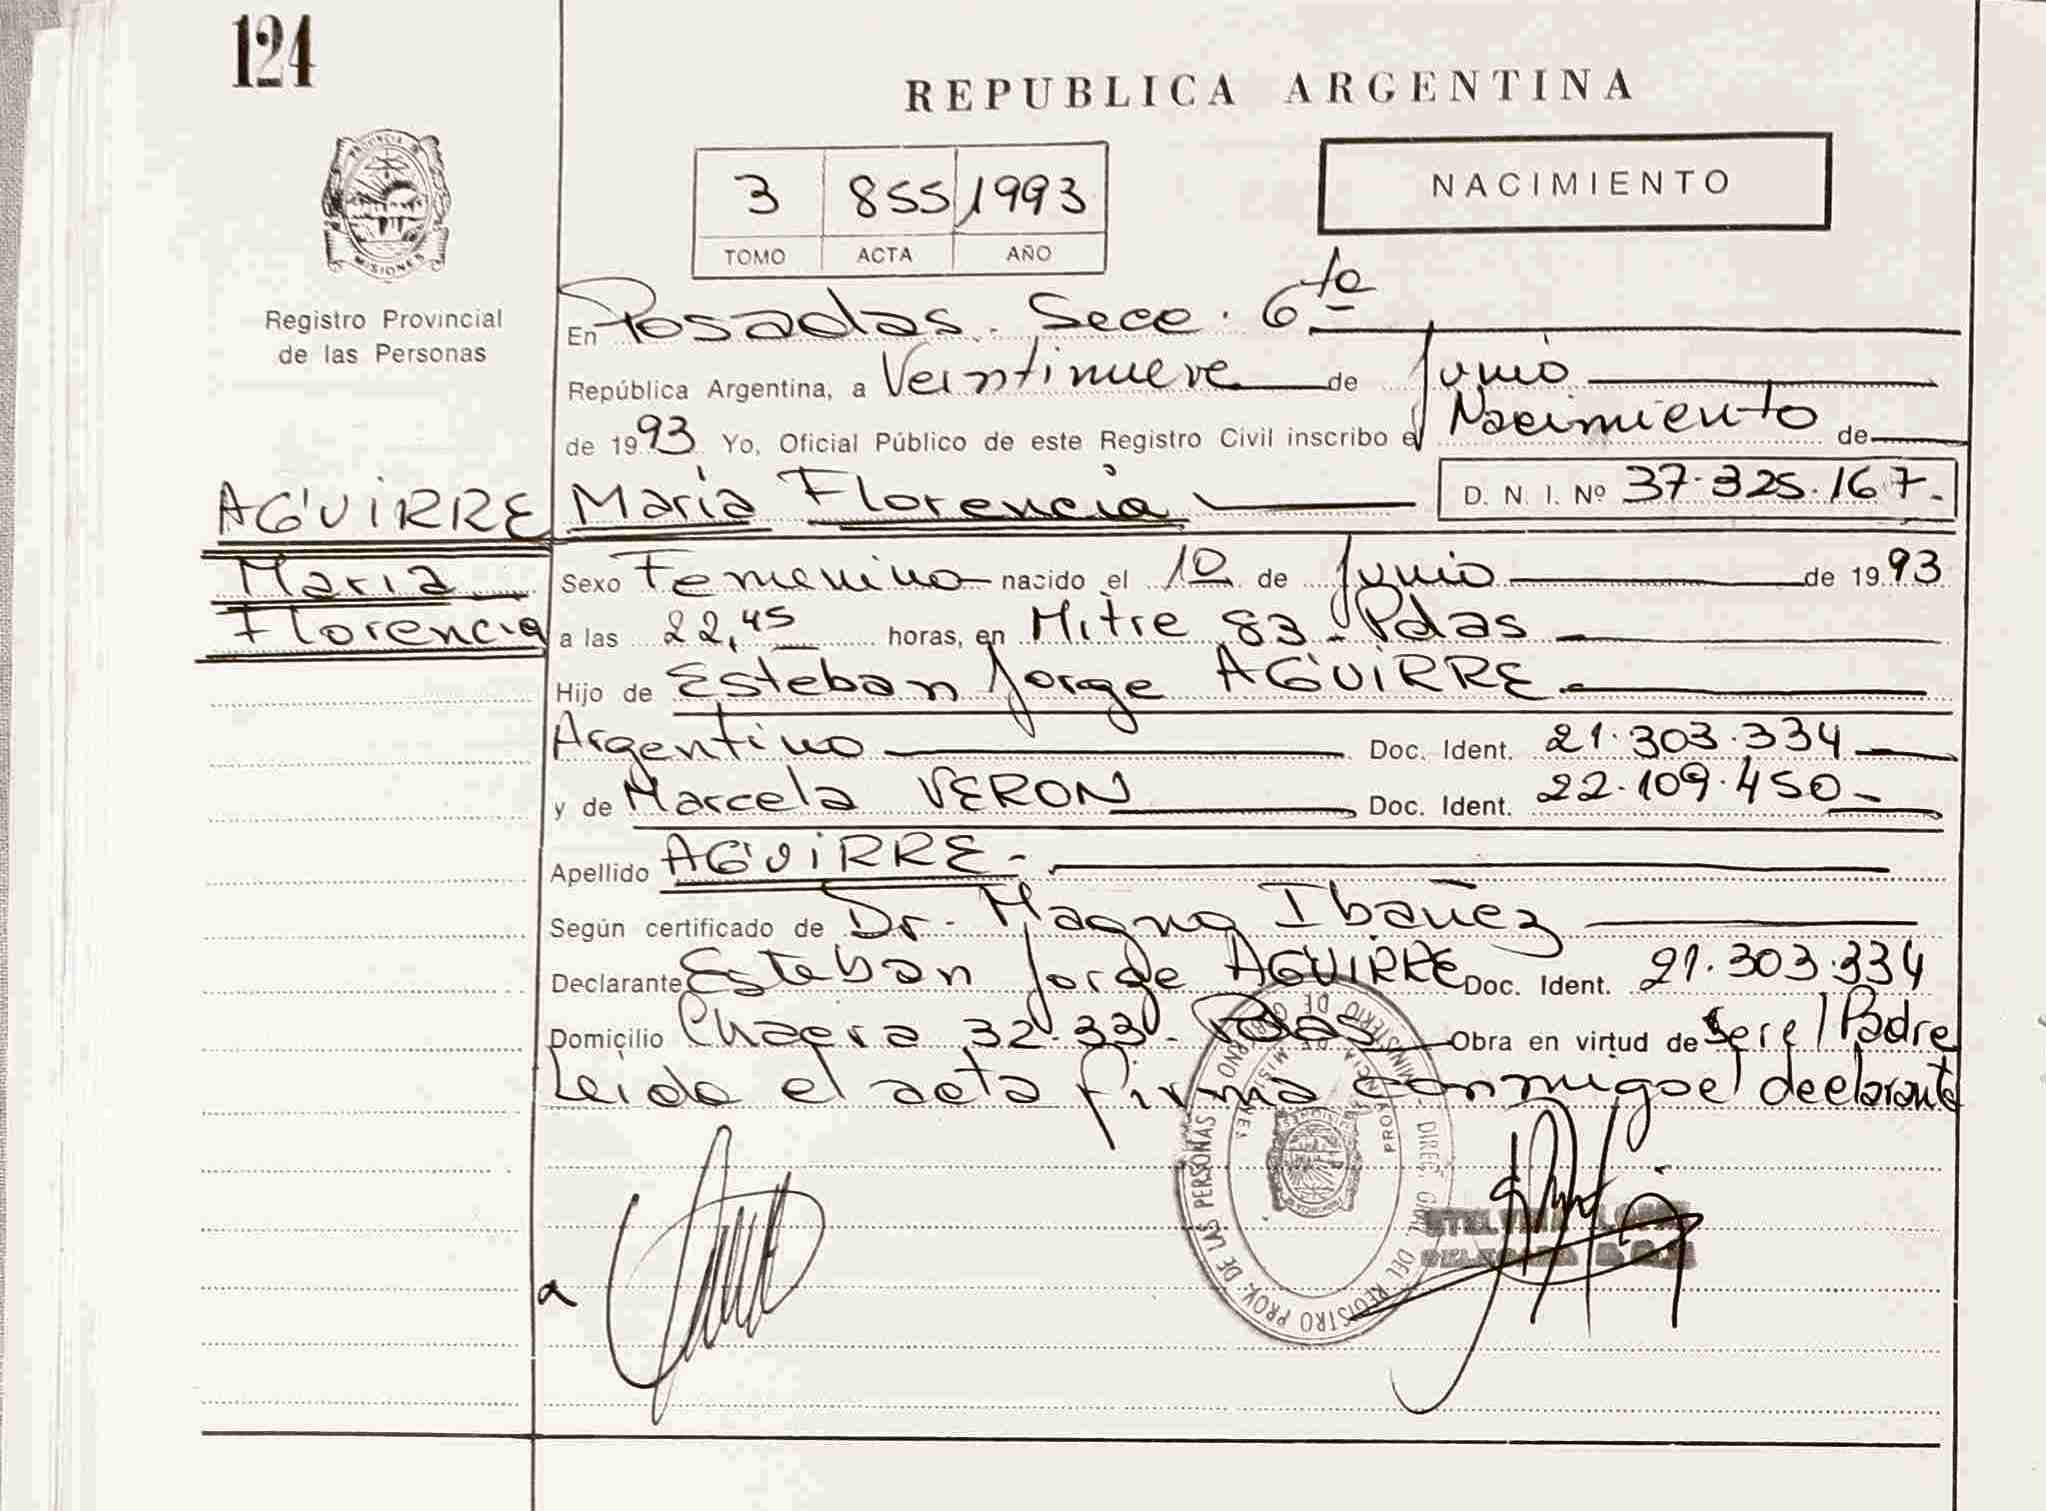 124
REPUBLICA ARGENTINA
PROVINCIA DE
MISIONES
Registro Provincial
de las Personas
3 855 1993
TOMO ACTA AÑO
NACIMIENTO
En Posadas. Secc. 6ta
República Argentina, a Veintinueve de Junio
de 1993 Yo, Oficial Público de este Registro Civil inscribo el Nacimiento de
AGUIRRE María Florencia D. N. I. Nº 37.325.167.
María
Florencia
Sexo Femenino nacido el 10 de Junio de 1993
a las 22,45 horas, en Mitre 83 - Pdas
Hijo de Esteban Jorge AGUIRRE.
Argentino Doc. Ident. 21.303.334
y de Marcela VERON Doc. Ident. 22.109.450
Apellido AGUIRRE -
Según certificado de Dr. Magno Ibañez
Declarante Esteban Jorge AGUIRRE Doc. Ident. 21.303.334
Domicilio Chacra 32-33 - Pdas Obra en virtud de ser el Padre
Leida el acta firma conmigo el declarante
MINISTERIO DE GOBIERNO
DIREC. GRAL. DEL REGISTRO PROV. DE LAS PERSONAS
PROVINCIA DE MISIONES